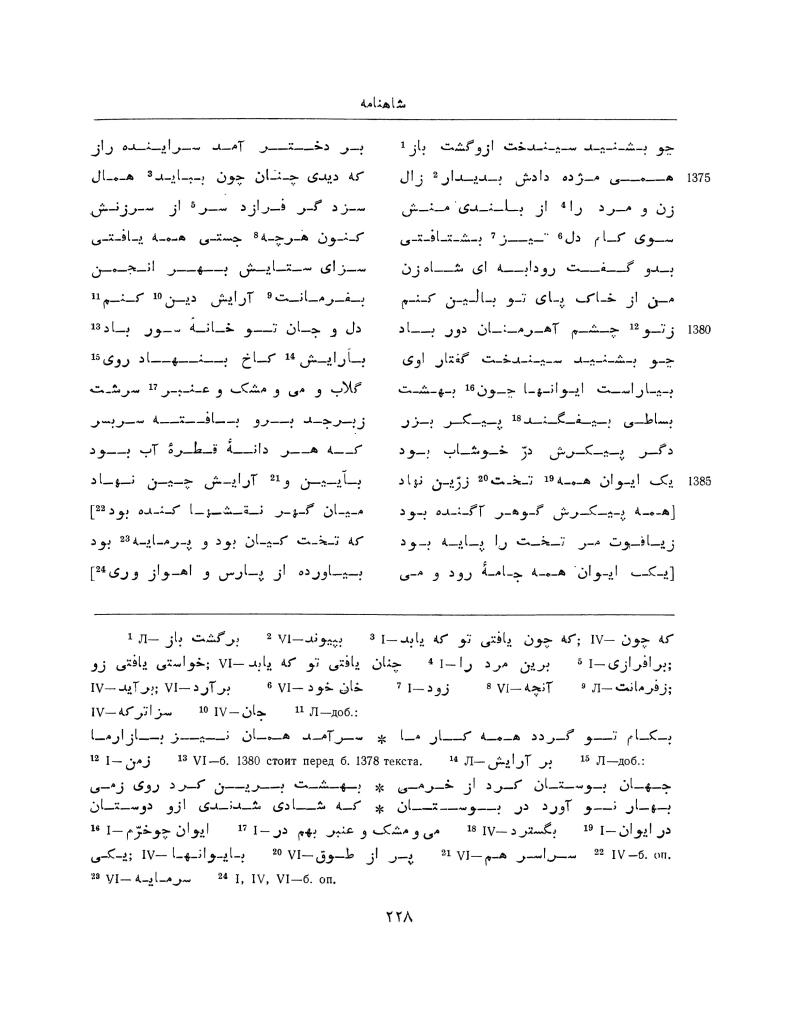 شاهنامه
چو بشنید سیندخت ازوگشت باز1 بر دختر آمد سراینده راز
1375 همی مژده دادش بدیدار2 زال که دیدی چنان چون بباید3 همال
زن و مرد را4 از بلندی منش سزد گر فرازد سر5 از سرزنش
سوی کام دل6 تیز7 بشتافتی کنون هرچه8 جستی همه یافتی
بدو گفت رودابه ای شاه زن سزای ستایش بهر انجمن
من از خاک پای تو بالین کنم بفرمانت9 آرایش دین10 کنم11
1380 زتو12 چشم آهرمنان دور باد دل و جان تو خانهٔ سور باد13
چو بشنید سیندخت گفتار اوی بآرایش14 کاخ بنهاد روی15
بیاراست ایوانها چون16 بهشت گلاب و می و مشک و عنبر17 سرشت
بساطی بیفگند18 پیکر بزر زبرجد برو بافته سربسر
دگر پیکرش درّ خوشاب بود که هر دانهٔ قطرهٔ آب بود
1385 یک ایوان همه19 تخت20 زرّین نهاد بآیین و21 آرایش چین نهاد
[همه پیکرش گوهر آگنده بود میان گهر نقشها کنده بود22]
زیاقوت مر تخت را پایه بود که تخت کیان بود و پرمایه23 بود
[یک ایوان همه جامهٔ رود و می بیاورده از پارس و اهواز وری24]
1 Л— برگشت باز 2 VI— بپیوند 3 I— که چون یافتی تو که یابد; IV— که چون
خواستی یافتی زو; VI— چنان یافتی تو که یابد 4 I— برین مرد را 5 I— برافرازی;
IV— برآید; VI— برآرد 6 VI— خان خود 7 I— زود 8 VI— آنچه 9 Л— زفرمانت;
IV— سزاترکه 10 IV— جان 11 Л—доб.:
بکام تو گردد همه کار ما * سرآمد همان نیز بازارما
12 I— زمن 13 VI—б. 1380 стоит перед б. 1378 текста. 14 Л— بر آرایش 15 Л—доб.:
جهان بوستان کرد از خرمی * بهشت برین کرد روی زمی
بهار نو آورد در بوستان * که شادی شدندی ازو دوستان
16 I— ایوان چوخرّم 17 I— می و مشک و عنبر بهم در 18 IV— بگسترد 19 I— در ایوان
یکی; IV— بایوانها 20 VI— پر از طوق 21 VI— سراسر هم 22 IV—б. оп.
23 VI— سرمایه 24 I, IV, VI—б. оп.
٢٢٨